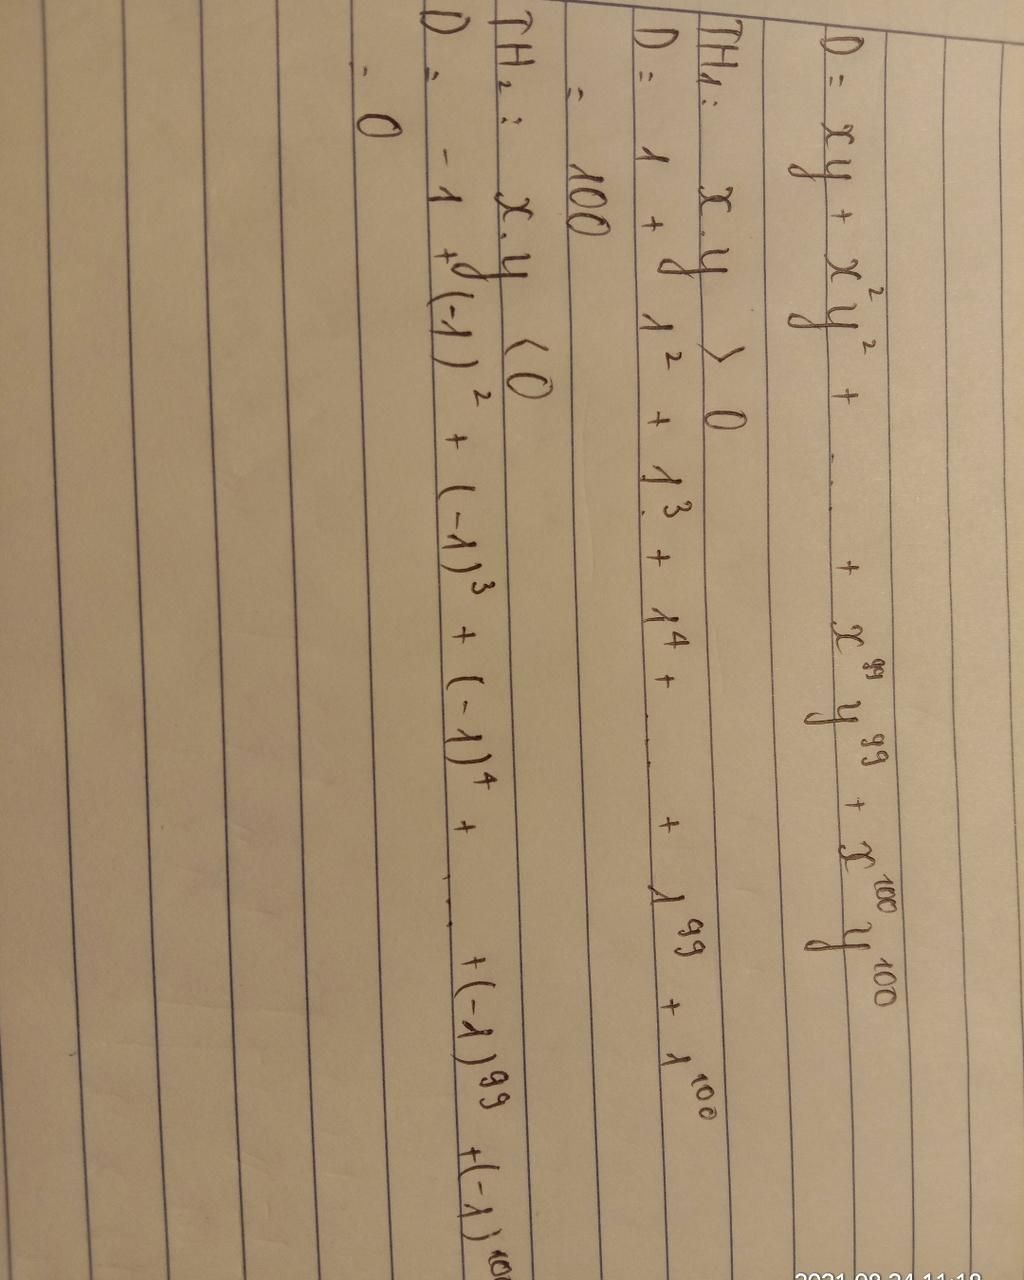 D = xy + x²y² + .... + x⁹⁹y⁹⁹ + x¹⁰⁰y¹⁰⁰
TH₁: x.y > 0
D = 1 + 1² + 1³ + 1⁴ + .... + 1⁹⁹ + 1¹⁰⁰
= 100
TH₂: x.y < 0
D = -1 + (-1)² + (-1)³ + (-1)⁴ + .... + (-1)⁹⁹ + (-1)¹⁰⁰
= 0